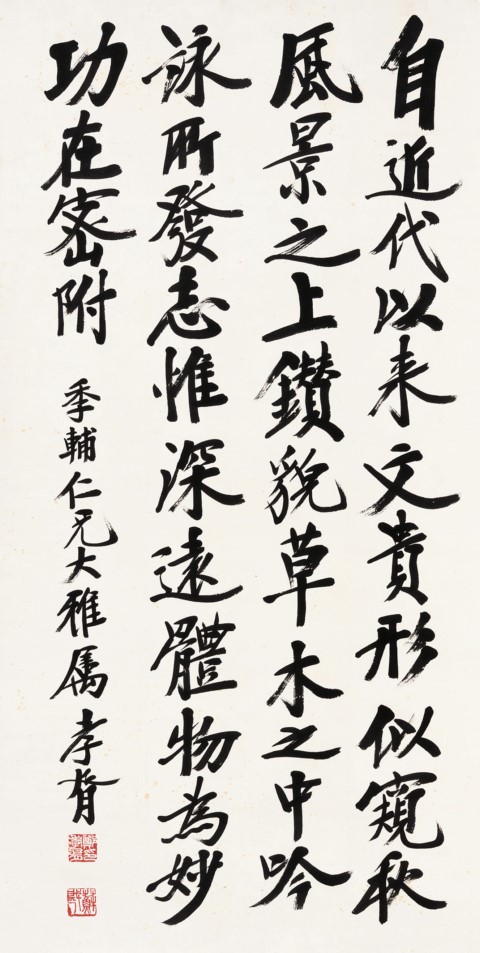 自近代以来文貴形似窺秋
風景之上鑽貌草木之中吟
詠所發志惟深遠體物為妙
功在密附 季輔仁兄大雅属 孝胥